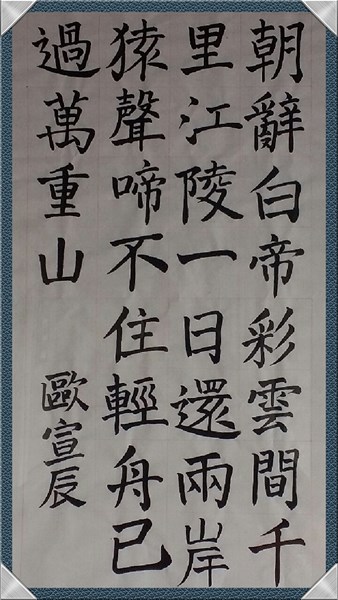 朝辭白帝彩雲間千
里江陵一日還兩岸
猿聲啼不住輕舟已
過萬重山
歐宣辰